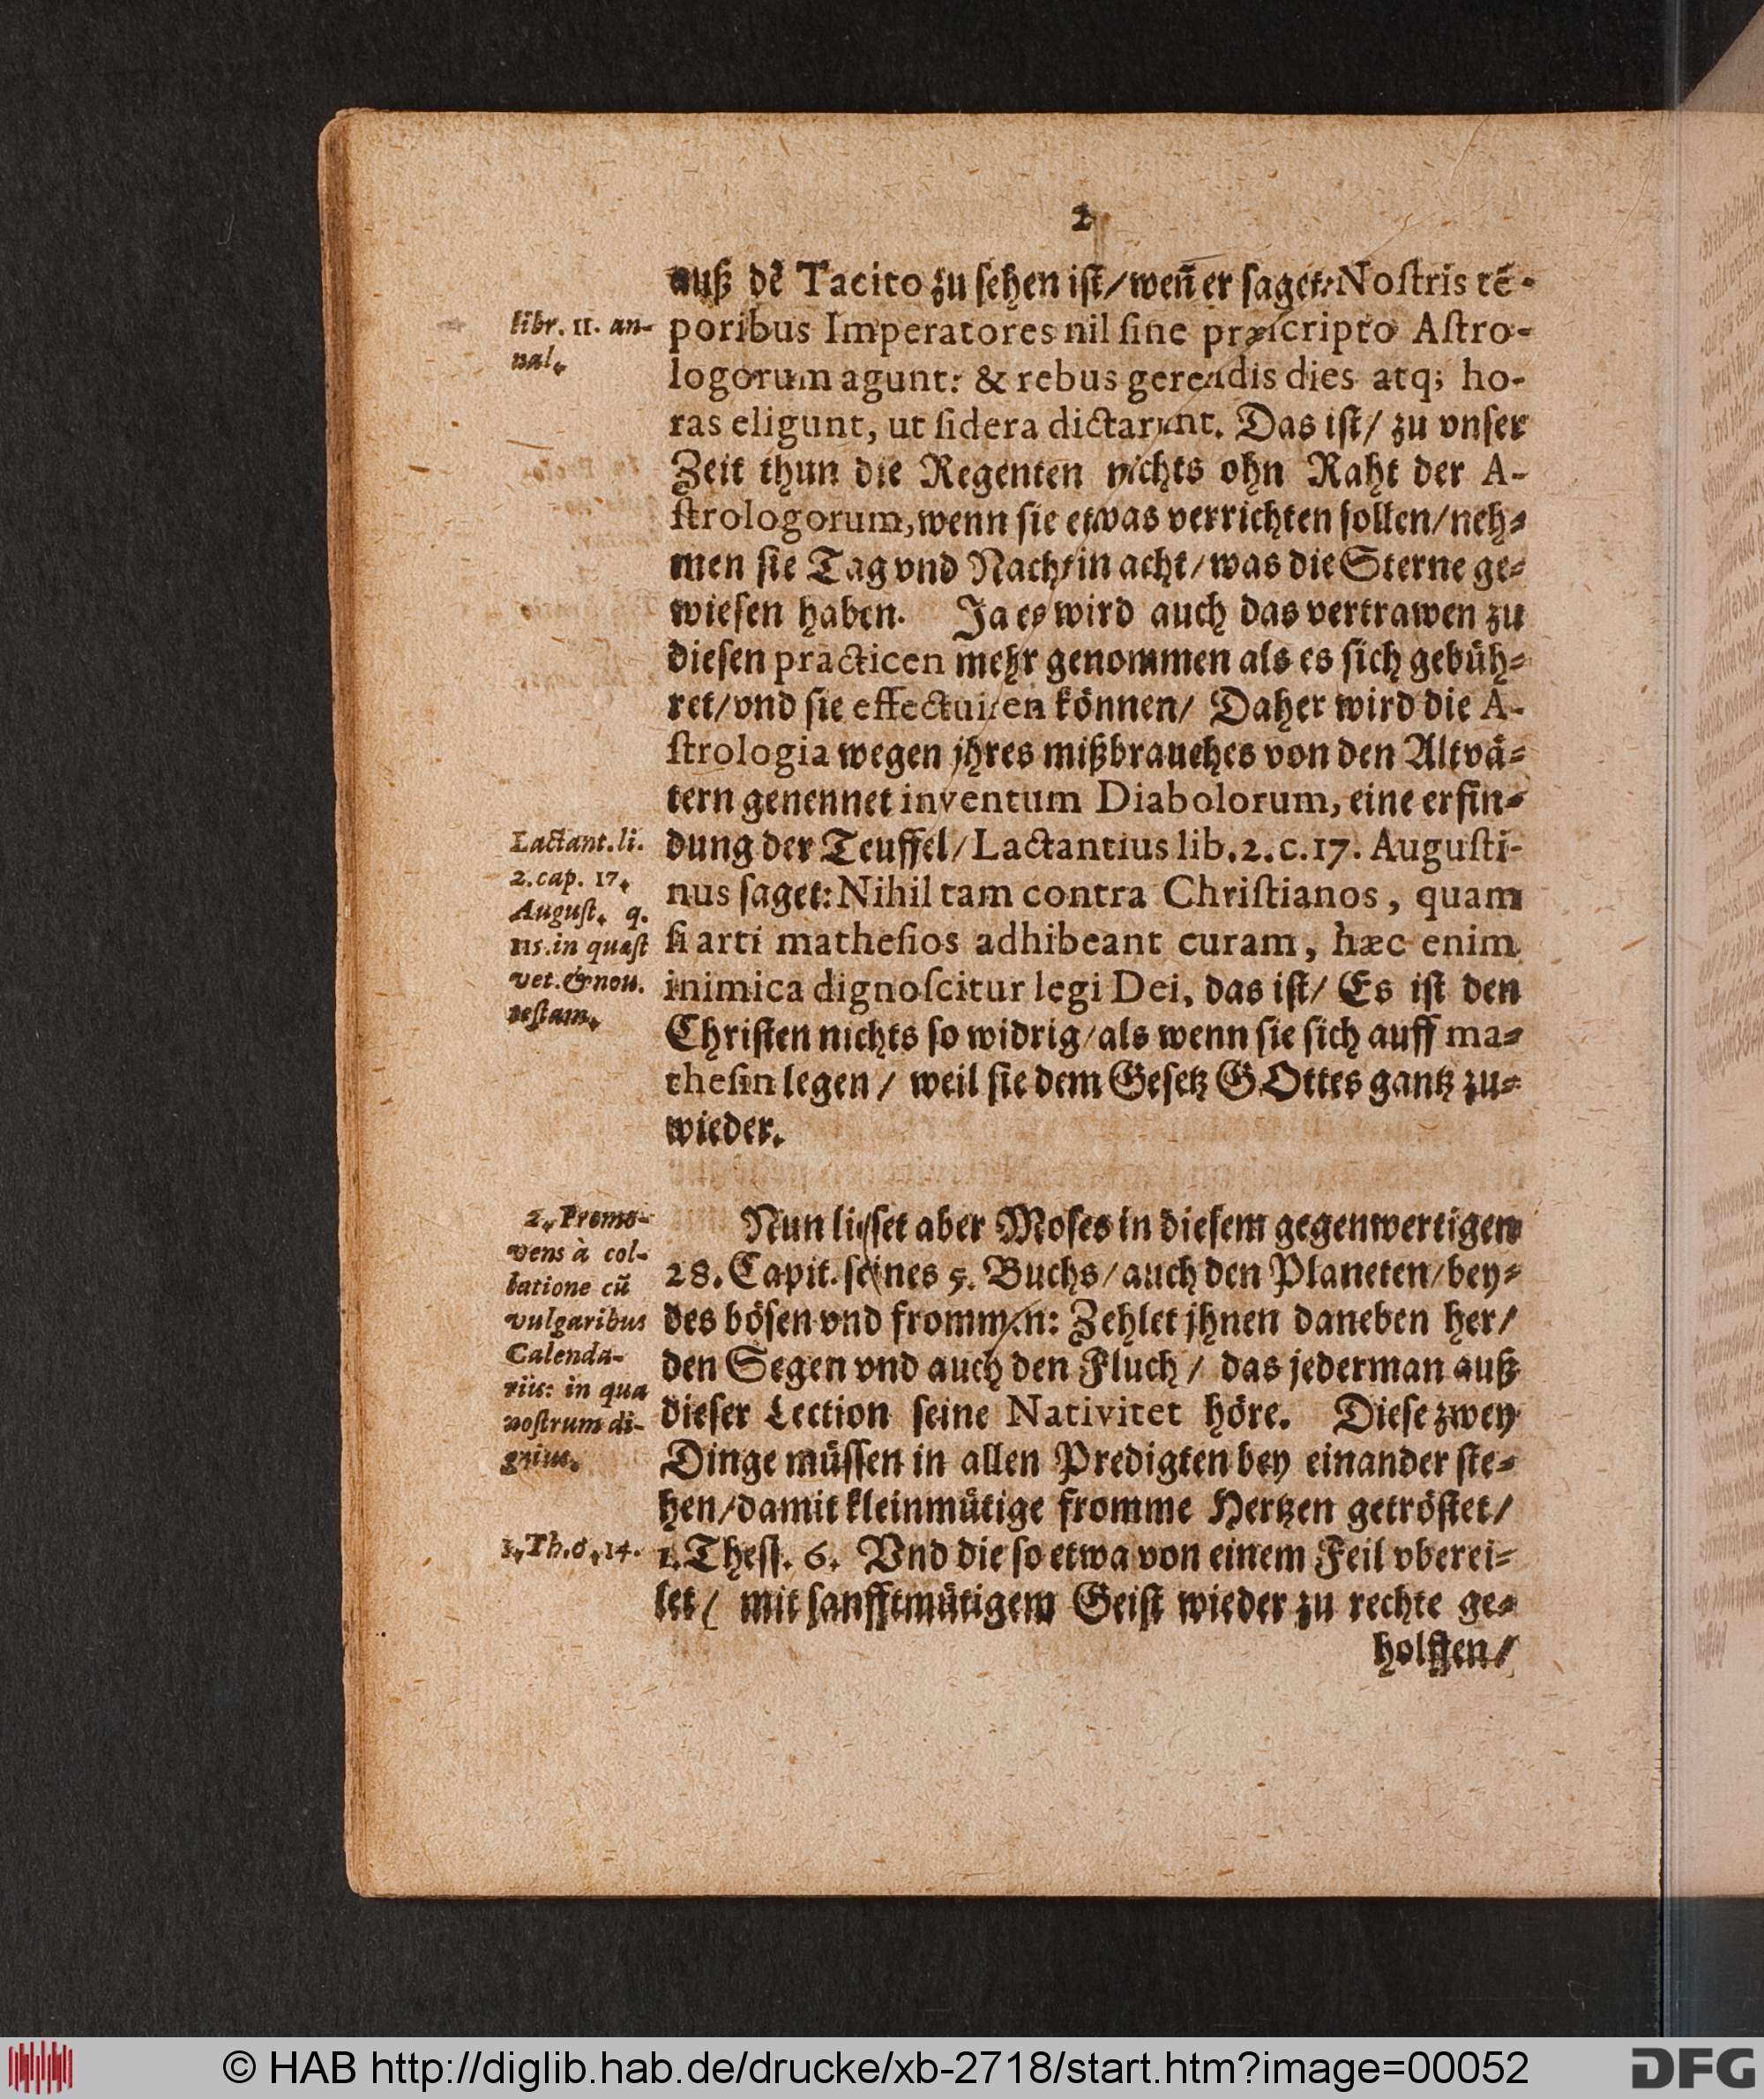 2
auß dē Tacito zu sehen ist/ weñ er saget: Noſtris tē-
poribus Imperatores nil ſine præſcripto Aſtro-
logorum agunt: & rebus gerendis dies atq; ho-
ras eligunt, ut ſidera dictarunt. Das iſt/ zu vnſer
Zeit thun die Regenten nichts ohn Raht der A-
ſtrologorum, wenn ſie etwas verrichten ſollen/ neh-
men ſie Tag vnd Nacht in acht/ was die Sterne ge-
wieſen haben. Ja es wird auch das vertrawen zu
dieſen practicen mehr genommen als es ſich gebüh-
ret/ vnd ſie effectuiren können/ Daher wird die A-
ſtrologia wegen jhres mißbrauches von den Altvä-
tern genennet inventum Diabolorum, eine erfin-
dung der Teuffel/ Lactantius lib. 2. c. 17. Auguſti-
nus ſaget: Nihil tam contra Chriſtianos, quam
ſi arti matheſios adhibeant curam, hæc enim
inimica dignoſcitur legi Dei, das iſt/ Es iſt den
Chriſten nichts ſo widrig/ als wenn ſie ſich auff ma-
theſin legen/ weil ſie dem Geſetz GOttes gantz zu-
wieder.
Nun lieſet aber Moſes in dieſem gegenwertigen
28. Capit. ſeines 5. Buchs/ auch den Planeten/ bey-
des böſen vnd frommen: Zehlet jhnen daneben her/
den Segen vnd auch den Fluch/ das jederman auß
dieſer Lection ſeine Nativitet höre. Dieſe zwey
Dinge müſſen in allen Predigten bey einander ſte-
hen/ damit kleinmütige fromme Hertzen getröſtet/
1. Theſſ. 6. Vnd die ſo etwa von einem Feil vberei-
let/ mit ſanfftmütigem Geiſt wieder zu rechte ge-
holffen/
libr. 11. an-
nal.
Lactant. li.
2. cap. 17.
Auguſt. q.
115. in quæſt
vet. & nou.
teſtam.
2. Promo-
vens à col-
latione cū
vulgaribus
Calenda-
riis: in qua
noſtrum di-
gnius.
1. Th. 6. 14.
© HAB http://diglib.hab.de/drucke/xb-2718/start.htm?image=00052
DFG